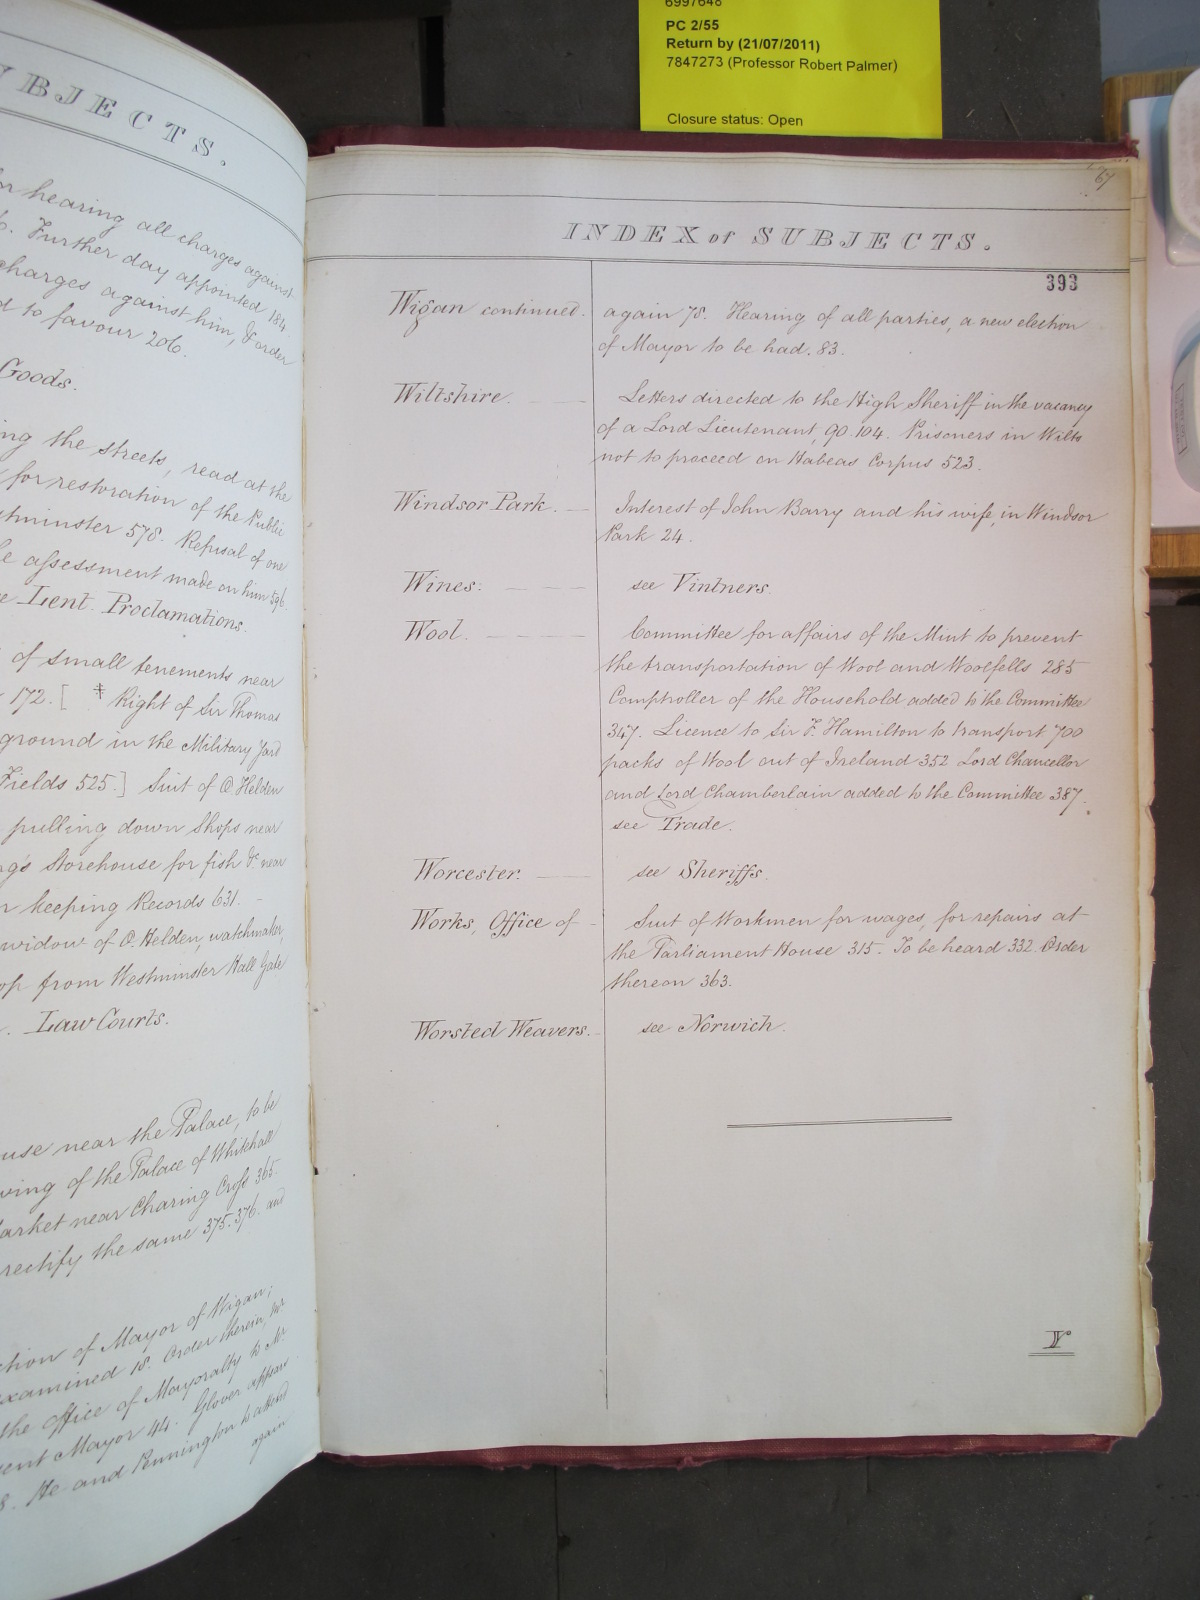 6997648
PC 2/55
Return by (21/07/2011)
7847273 (Professor Robert Palmer)
Closure status: Open
UBJECTS.
for hearing all charges against
6. Further day appointed 184
charges against him, & order
d to favour 206.
Goods.
ing the streets, read at the
for restoration of the Public
stminster 578. Refusal of one
e assessment made on him 596.
e Lent. Proclamations.
of small tenements near
172. [ ‡ Right of Sir Thomas
ground in the Military Yard
Fields 525.] Suit of O. Helden
pulling down Shops near
ng's Storehouse for fish &c. near
n keeping Records 631.
widow of O. Helden, watchmaker,
op from Westminster Hall Gate
. Law Courts.
use near the Palace, to be
ving of the Palace of Whitehall
arket near Charing Cross 365.
rectify the same 375. 376. and
ction of Mayor of Wigan;
examined 18. Order therein, Mr
the office of Mayoralty to Mr
ent Mayor 44. Glover appears
8. He and Pennington to attend
again
67
INDEX of SUBJECTS.
393
Wigan continued. again 78. Hearing of all parties, a new election
of Mayor to be had. 83.
Wiltshire. Letters directed to the High Sheriff in the vacancy
of a Lord Lieutenant, 90. 104. Prisoners in Wilts
not to proceed on Habeas Corpus 523.
Windsor Park. Interest of John Barry and his wife, in Windsor
Park 24.
Wines: see Vintners.
Wool. Committee for affairs of the Mint to prevent
the transportation of Wool and Woolfells 285
Comptroller of the Household added to the Committee
347. Licence to Sir F. Hamilton to transport 700
packs of Wool out of Ireland 352 Lord Chancellor
and Lord Chamberlain added to the Committee 387.
see Trade.
Worcester. see Sheriffs.
Works, Office of - Suit of Workmen for wages, for repairs at
the Parliament House 315. To be heard 332. Order
thereon 363.
Worsted Weavers. see Norwich.
Y